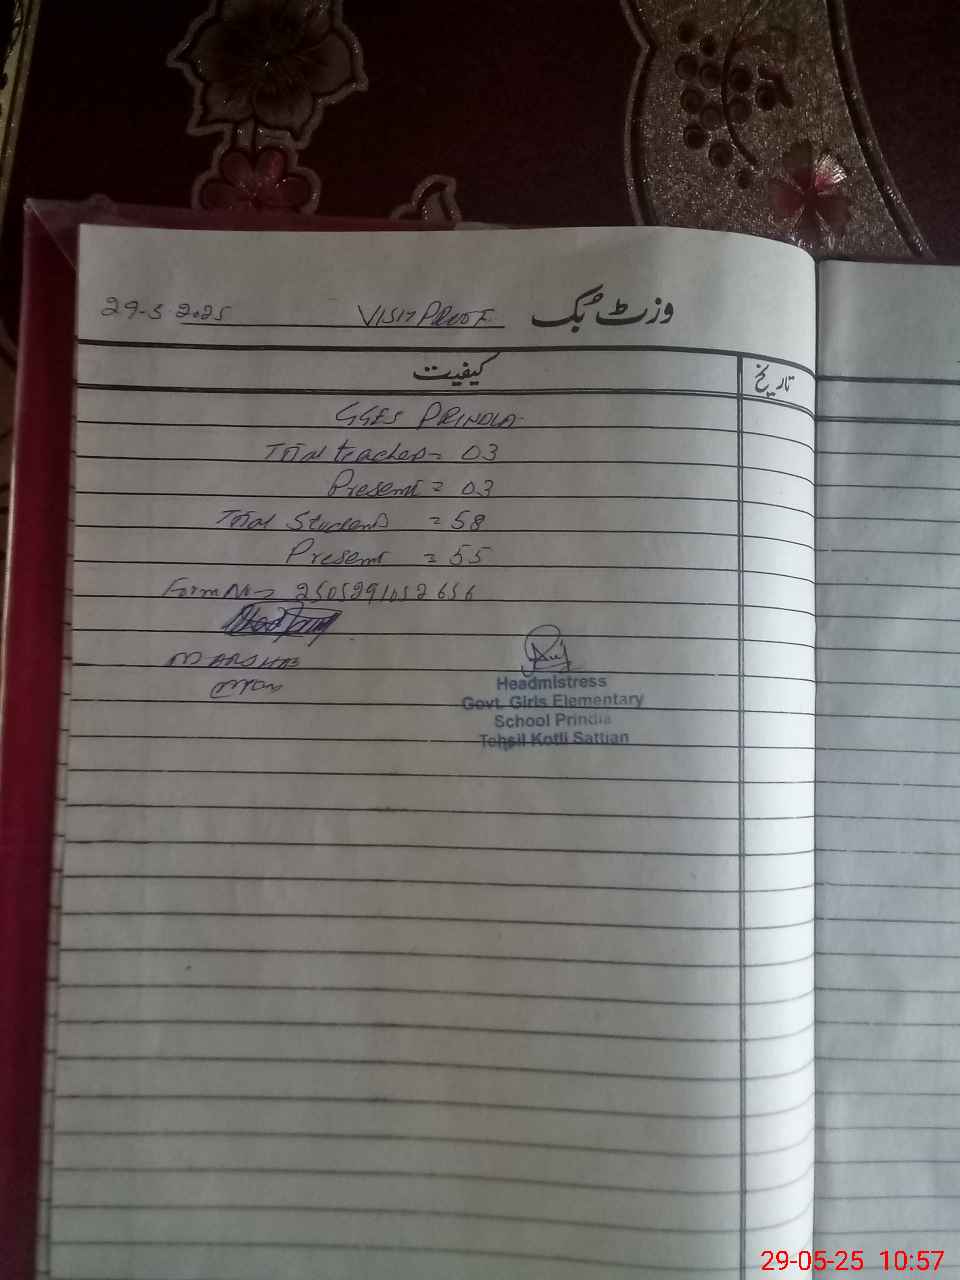 29-5-2025 VISIT PROOF وزٹ بُک
کیفیت تاریخ
GGES PRINDLA
Total teacher = 03
Present = 03
Total Students = 58
Present = 55
Form No = 2505291052656
M ARSHAD
Headmistress
Govt. Girls Elementary
School Prindla
Tehsil Kotli Sattian
29-05-25 10:57